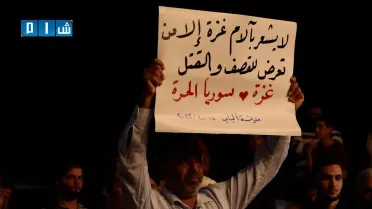 شام
لا يشعر بآلام غزة إلا من
تعرض للقصف والقتل
غزة ♥ سوريا الحرة